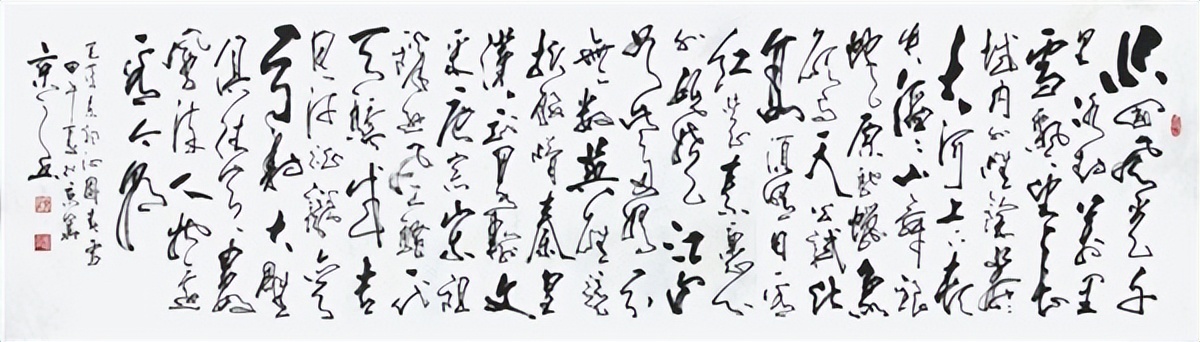 北国风光千
里冰封万里
雪飘望长
城内外惟余莽
大河上下顿
失滔滔山舞银
蛇原驰蜡象
欲与天公试比
高须晴日看
红装素裹分
外妖娆江山
如此多娇引
无数英雄竞
折腰惜秦皇
汉武略输文
采唐宗宋祖
稍逊风骚一代
天骄成吉
思汗只识弯
弓射大雕
俱往矣数
风流人物还
看今朝
毛泽东词沁园春雪